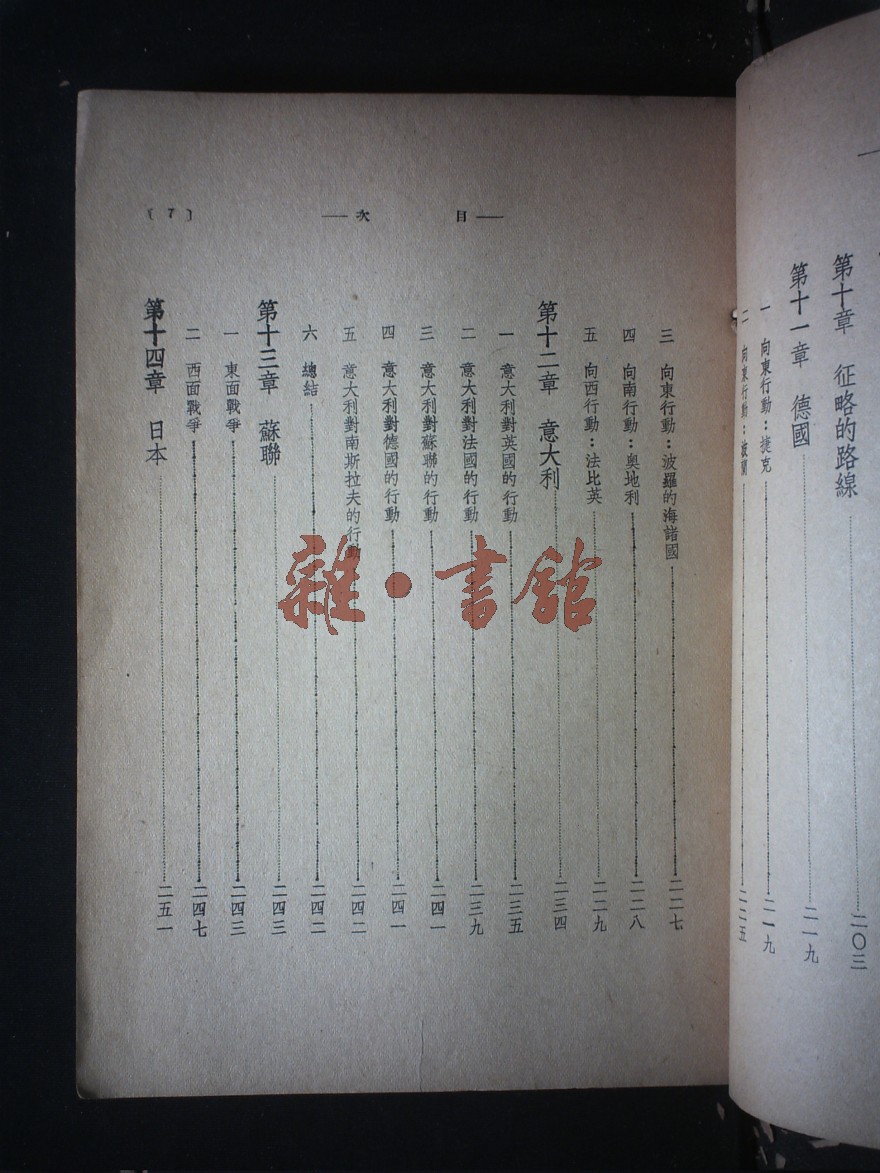 第十章　征略的路線 二〇三
第十一章　德國 二一九
一　向東行動：捷克 二一九
二　向東行動：波蘭 二二五
目次
〔7〕
三　向東行動：波羅的海諸國 二二七
四　向南行動：奧地利 二二八
五　向西行動：法比英 二二九
第十二章　意大利 二三四
一　意大利對英國的行動 二三五
二　意大利對法國的行動 二三九
三　意大利對蘇聯的行動 二四一
四　意大利對德國的行動 二四一
五　意大利對南斯拉夫的行動 二四二
六　總結 二四二
第十三章　蘇聯 二四三
一　東面戰爭 二四三
二　西面戰爭 二四七
第十四章　日本 二五一
雜·書館